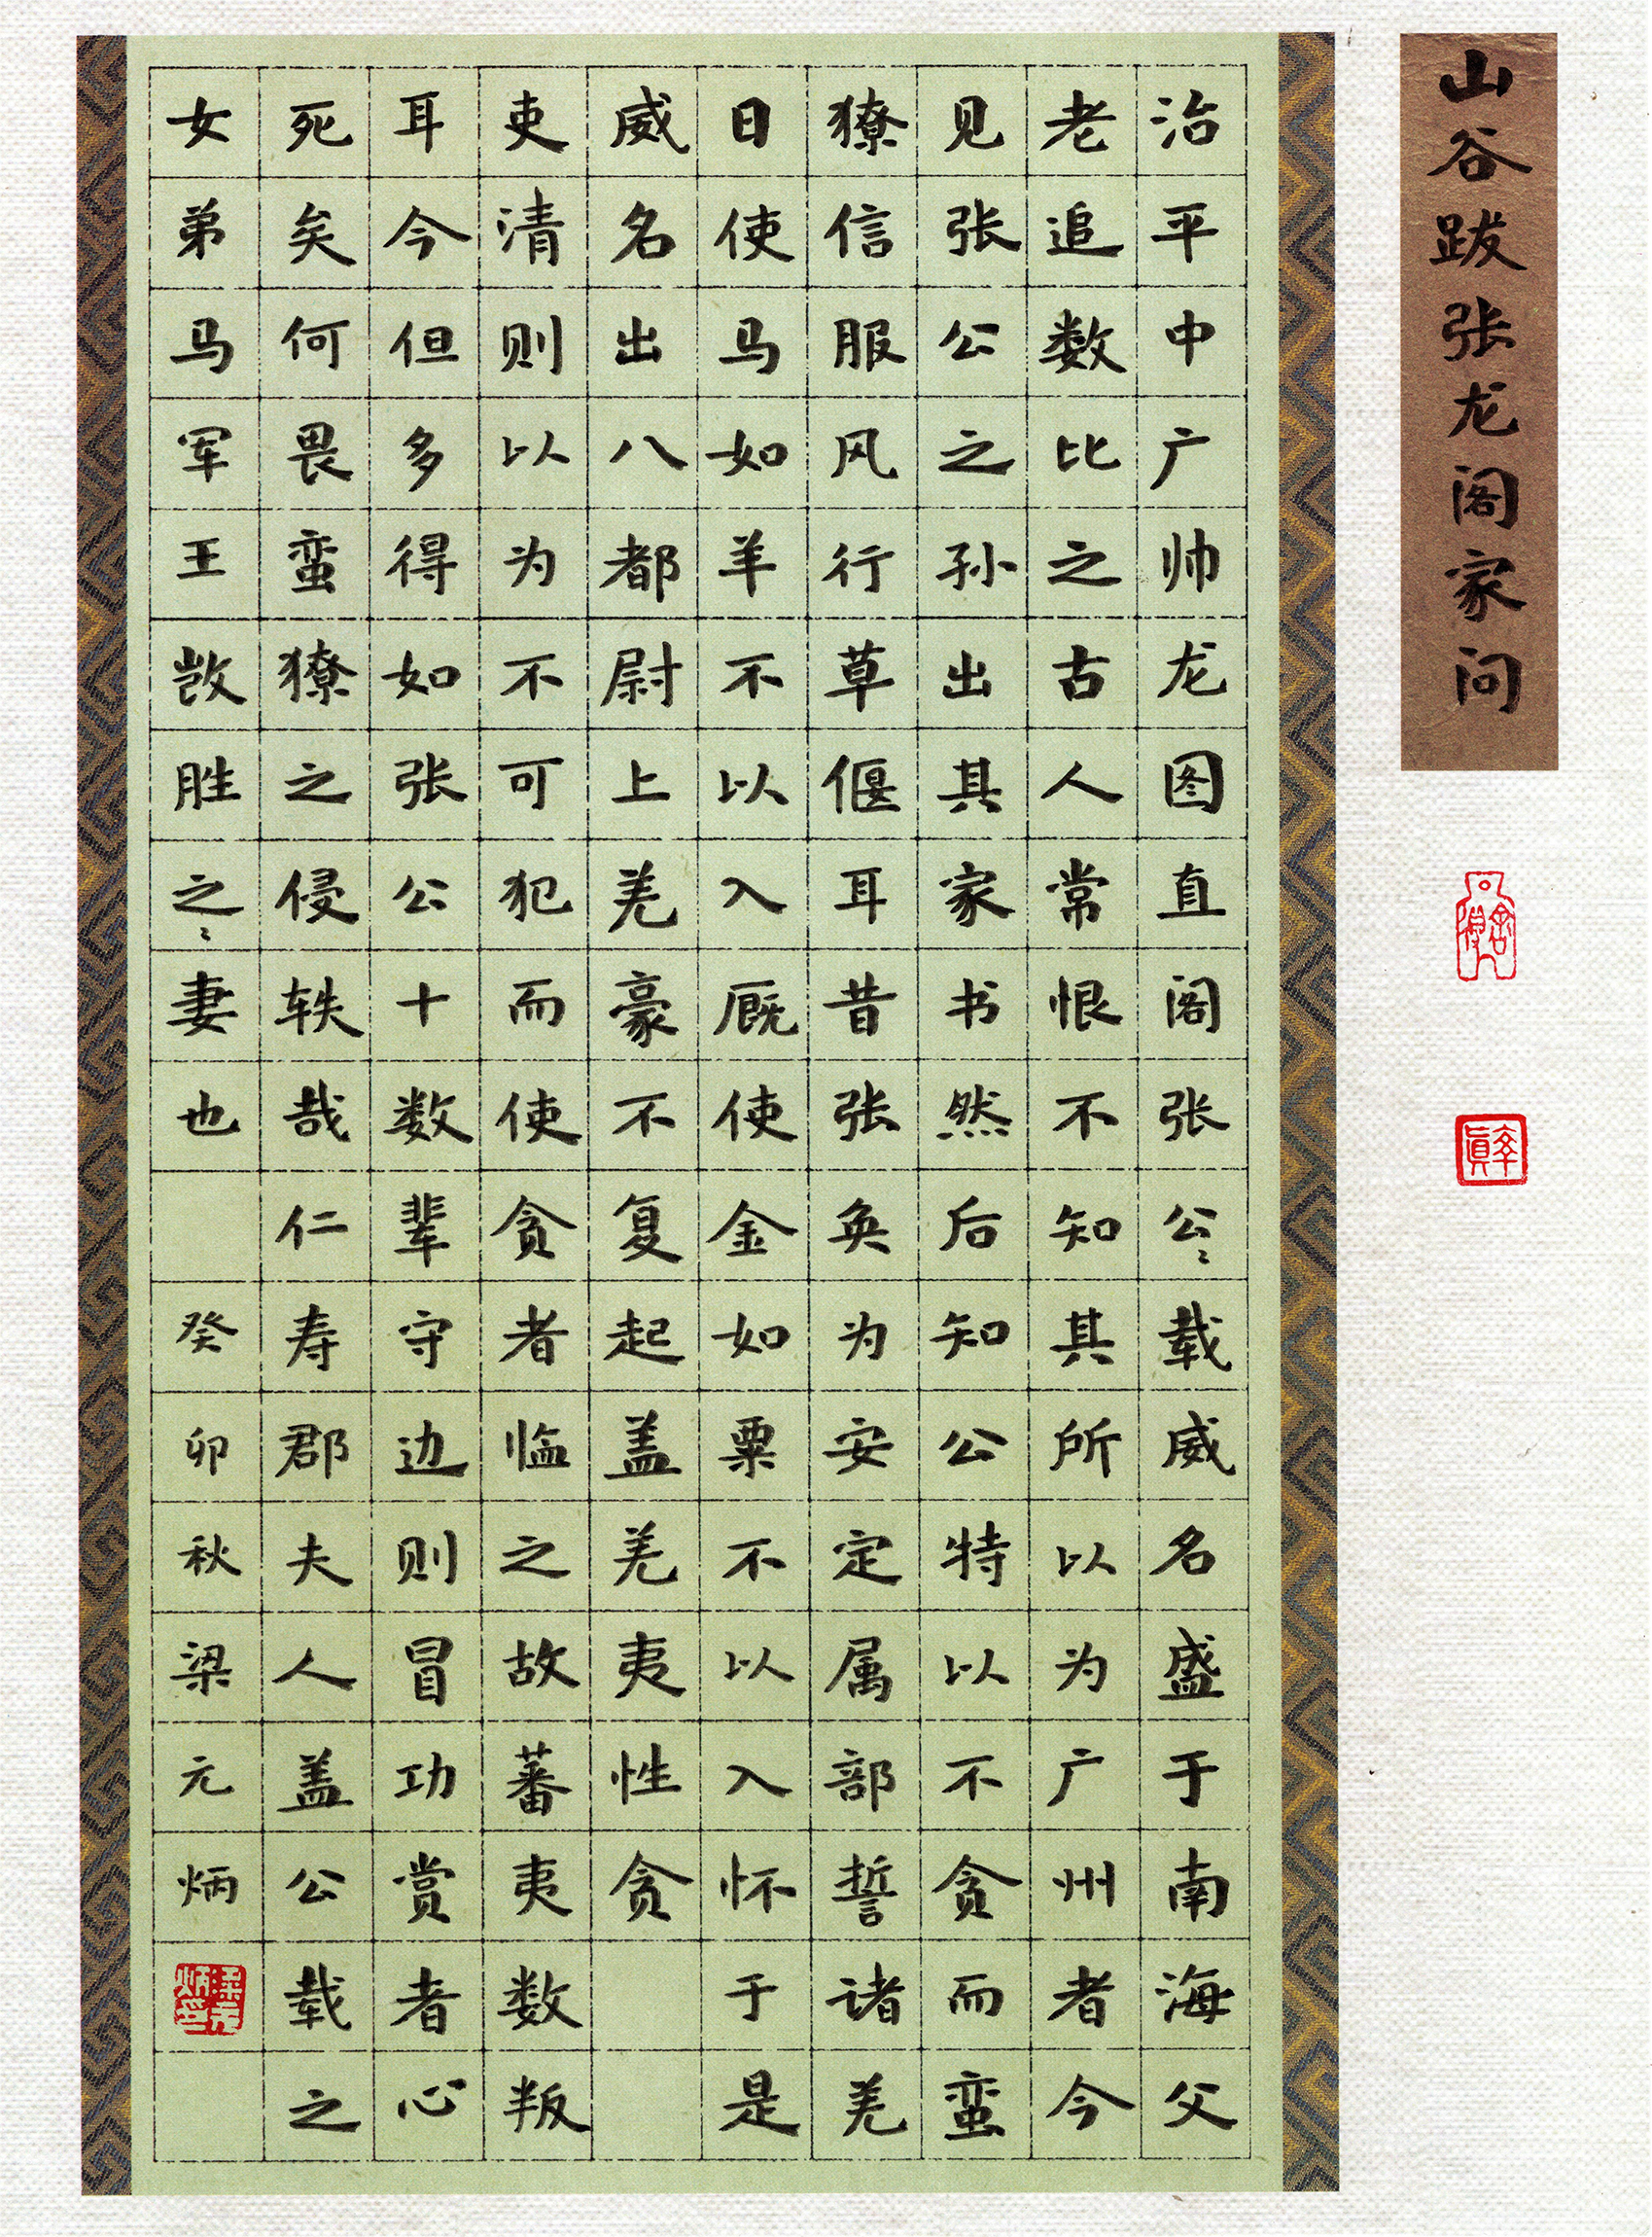 山谷跋张龙阁家问
舍得
率真
治平中广帅龙图直阁张公〻载威名盛于南海父
老追数比之古人常恨不知其所以为广州者今
见张公之孙出其家书然后知公特以不贪而蛮
獠信服风行草偃耳昔张奂为安定属部誓诸羌
日使马如羊不以入厩使金如粟不以入怀于是
威名出八都尉上羌豪不复起盖羌夷性贪
吏清则以为不可犯而使贪者临之故蕃夷数叛
耳今但多得如张公十数辈守边则冒功赏者心
死矣何畏蛮獠之侵轶哉仁寿郡夫人盖公载之
女弟马军王敳胜之〻妻也 癸卯秋梁元炳
梁元炳印